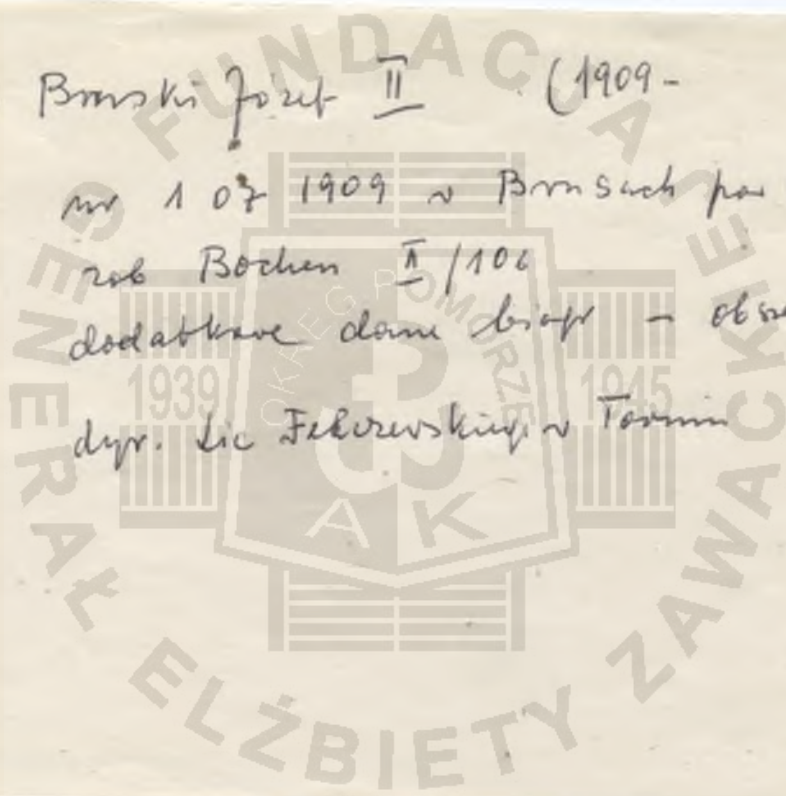 Józef II (1909-
ur 1 07 1909 w Brusach pow
zob Bochen II/106
dodatkowe dane biogr - obsz
dyr. Lic w Toruniu
FUNDACJA
GENERAŁ ELŻBIETY ZAWACKIEJ
OKRĘG POMORZE
1939 1945
AK